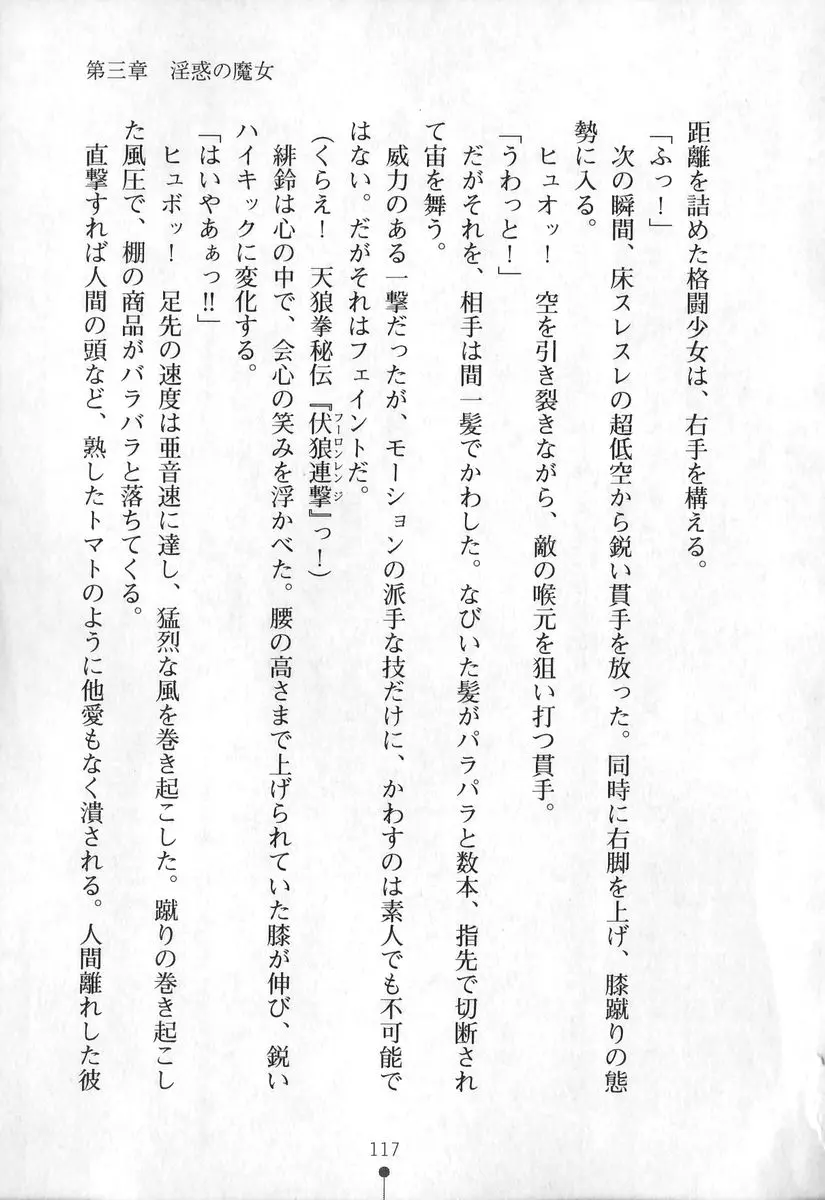 第三章　淫惑の魔女
距離を詰めた格闘少女は、右手を構える。
「ふっ！」
次の瞬間、床スレスレの超低空から鋭い貫手を放った。同時に右脚を上げ、膝蹴りの態
勢に入る。
ヒュオッ！　空を引き裂きながら、敵の喉元を狙い打つ貫手。
「うわっと！」
だがそれを、相手は間一髪でかわした。なびいた髪がパラパラと数本、指先で切断され
て宙を舞う。
威力のある一撃だったが、モーションの派手な技だけに、かわすのは素人でも不可能で
はない。だがそれはフェイントだ。
（くらえ！　天狼拳秘伝『伏狼連撃』っ！）
フーロンレンジ
緋鈴は心の中で、会心の笑みを浮かべた。腰の高さまで上げられていた膝が伸び、鋭い
ハイキックに変化する。
「はいやあぁっ!!」
ヒュボッ！　足先の速度は亜音速に達し、猛烈な風を巻き起こした。蹴りの巻き起こし
た風圧で、棚の商品がバラバラと落ちてくる。
直撃すれば人間の頭など、熟したトマトのように他愛もなく潰される。人間離れした彼
117